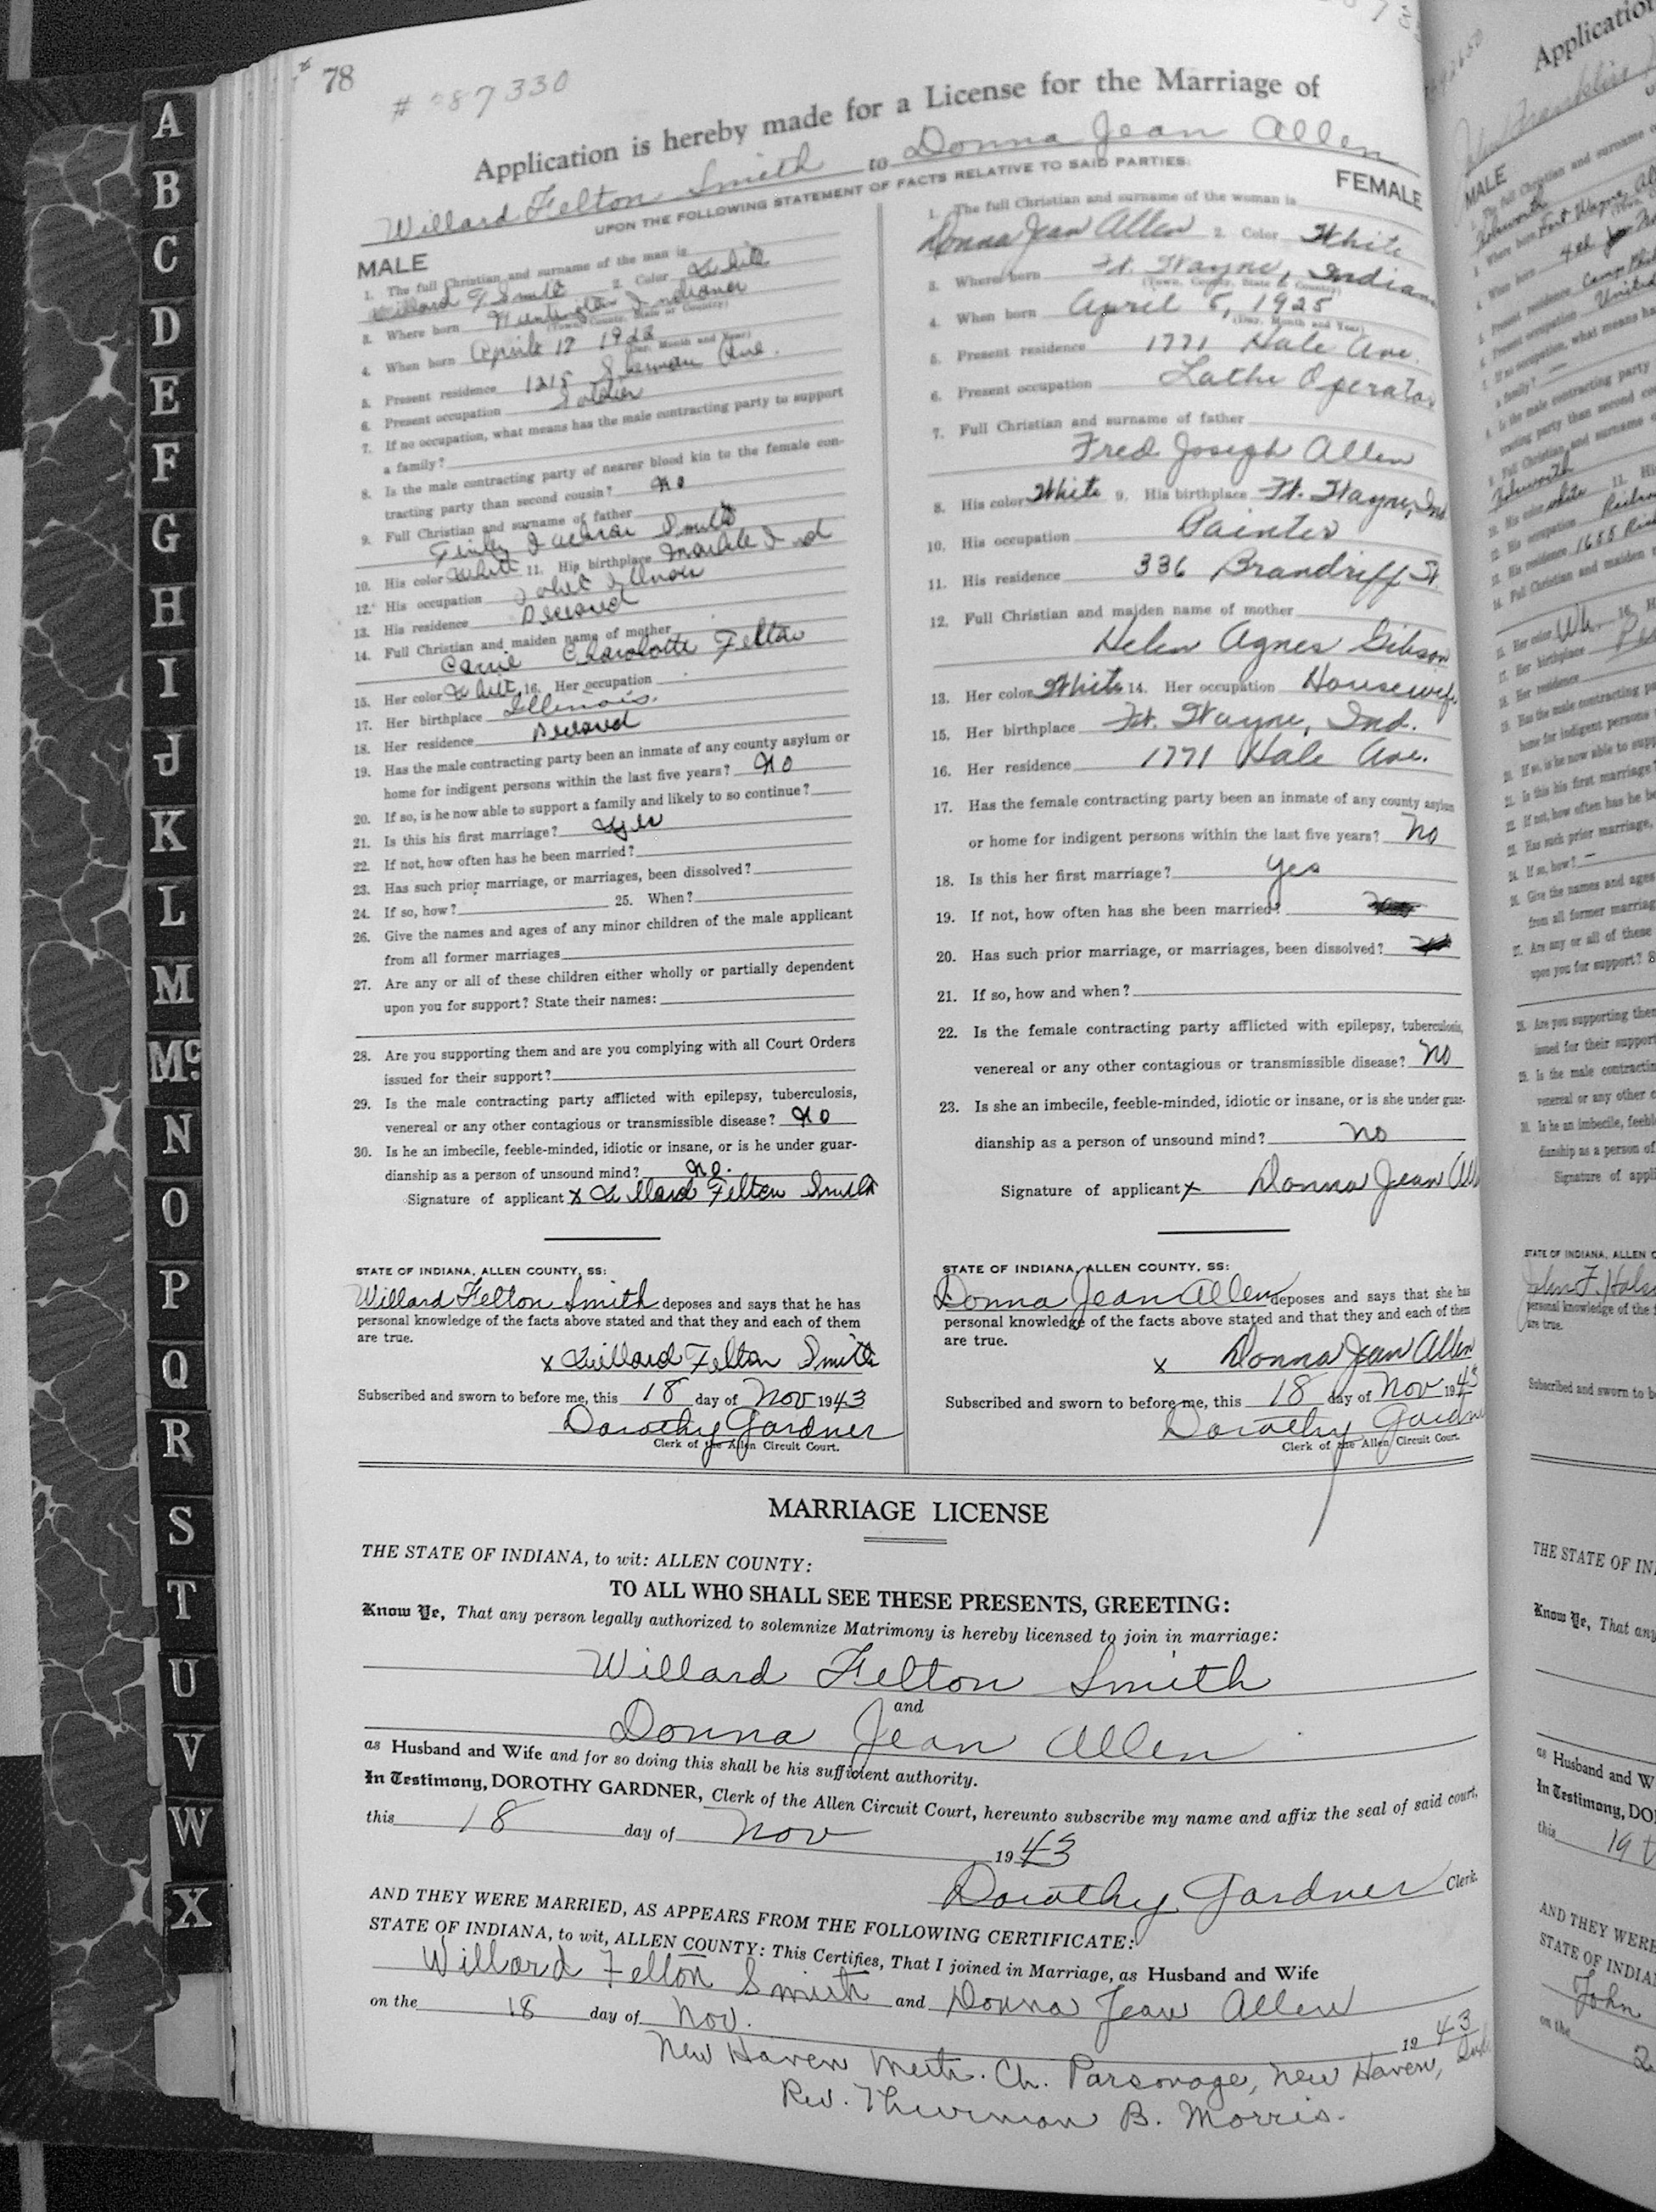 78
# 087330
Application is hereby made for a License for the Marriage of
Willard Felton Smith to Donna Jean Allen
UPON THE FOLLOWING STATEMENT OF FACTS RELATIVE TO SAID PARTIES:
MALE
1. The full Christian and surname of the man is
Willard F Smith 2. Color White
3. Where born Huntington Indiana
(Town, County, State or Country)
4. When born April 17
(Day, Month and Year)
5. Present residence 1215 Sherman Ave.
6. Present occupation Soldier
7. If no occupation, what means has the male contracting party to support
a family?
8. Is the male contracting party of nearer blood kin to the female con-
tracting party than second cousin? No
9. Full Christian and surname of father
Smith
10. His color White 11. His birthplace Ind
12. His occupation Joliet Illinois
13. His residence Deceased
14. Full Christian and maiden name of mother
Carrie Charolotte Felton
15. Her color White 16. Her occupation
17. Her birthplace Illinois.
18. Her residence Deceased
19. Has the male contracting party been an inmate of any county asylum or
home for indigent persons within the last five years? No
20. If so, is he now able to support a family and likely to so continue?
21. Is this his first marriage? Yes
22. If not, how often has he been married?
23. Has such prior marriage, or marriages, been dissolved?
24. If so, how? 25. When?
26. Give the names and ages of any minor children of the male applicant
from all former marriages
27. Are any or all of these children either wholly or partially dependent
upon you for support? State their names:
28. Are you supporting them and are you complying with all Court Orders
issued for their support?
29. Is the male contracting party afflicted with epilepsy, tuberculosis,
venereal or any other contagious or transmissible disease? No
30. Is he an imbecile, feeble-minded, idiotic or insane, or is he under guar-
dianship as a person of unsound mind? No.
Signature of applicant x Willard Felton Smith
STATE OF INDIANA, ALLEN COUNTY, SS:
Willard Felton Smith deposes and says that he has
personal knowledge of the facts above stated and that they and each of them
are true.
x Willard Felton Smith
Subscribed and sworn to before me, this 18 day of Nov 1943
Dorothy Gardner
Clerk of the Allen Circuit Court.
FEMALE
1. The full Christian and surname of the woman is
Donna Jean Allen 2. Color White
3. Where born Ft. Wayne, Indiana
(Town, County, State or Country)
4. When born April 5, 1925
(Day, Month and Year)
5. Present residence 1771 Hale Ave.
6. Present occupation Lathe Operator
7. Full Christian and surname of father
Fred Joseph Allen
8. His color White 9. His birthplace Ft. Wayne, Ind
10. His occupation Painter
11. His residence 336 Brandriff St.
12. Full Christian and maiden name of mother
Helen Agnes Gibson
13. Her color White 14. Her occupation Housewife
15. Her birthplace Ft. Wayne, Ind.
16. Her residence 1771 Hale Ave.
17. Has the female contracting party been an inmate of any county asylum
or home for indigent persons within the last five years? No
18. Is this her first marriage? Yes
19. If not, how often has she been married?
20. Has such prior marriage, or marriages, been dissolved?
21. If so, how and when?
22. Is the female contracting party afflicted with epilepsy, tuberculosis,
venereal or any other contagious or transmissible disease? No
23. Is she an imbecile, feeble-minded, idiotic or insane, or is she under guar-
dianship as a person of unsound mind? No
Signature of applicant x Donna Jean All
STATE OF INDIANA, ALLEN COUNTY, SS:
Donna Jean Allen deposes and says that she has
personal knowledge of the facts above stated and that they and each of them
are true.
x Donna Jean Allen
Subscribed and sworn to before me, this 18 day of Nov 1943
Dorothy Gardner
Clerk of the Allen Circuit Court.
MARRIAGE LICENSE
THE STATE OF INDIANA, to wit: ALLEN COUNTY:
TO ALL WHO SHALL SEE THESE PRESENTS, GREETING:
Know Ye, That any person legally authorized to solemnize Matrimony is hereby licensed to join in marriage:
Willard Felton Smith
and
Donna Jean Allen
as Husband and Wife and for so doing this shall be his sufficient authority.
In Testimony, DOROTHY GARDNER, Clerk of the Allen Circuit Court, hereunto subscribe my name and affix the seal of said court,
this 18 day of Nov 1943
Dorothy Gardner Clerk.
AND THEY WERE MARRIED, AS APPEARS FROM THE FOLLOWING CERTIFICATE:
STATE OF INDIANA, to wit, ALLEN COUNTY: This Certifies, That I joined in Marriage, as Husband and Wife
Willard Felton Smith and Donna Jean Allen
on the 18 day of Nov. 1943
New Haven Meth. Ch. Parsonage, New Haven, Ind.
Rev. Thurman B. Morris.
A
B
C
D
E
F
G
H
I
J
K
L
M
Mc
N
O
P
Q
R
S
T
U
V
W
X